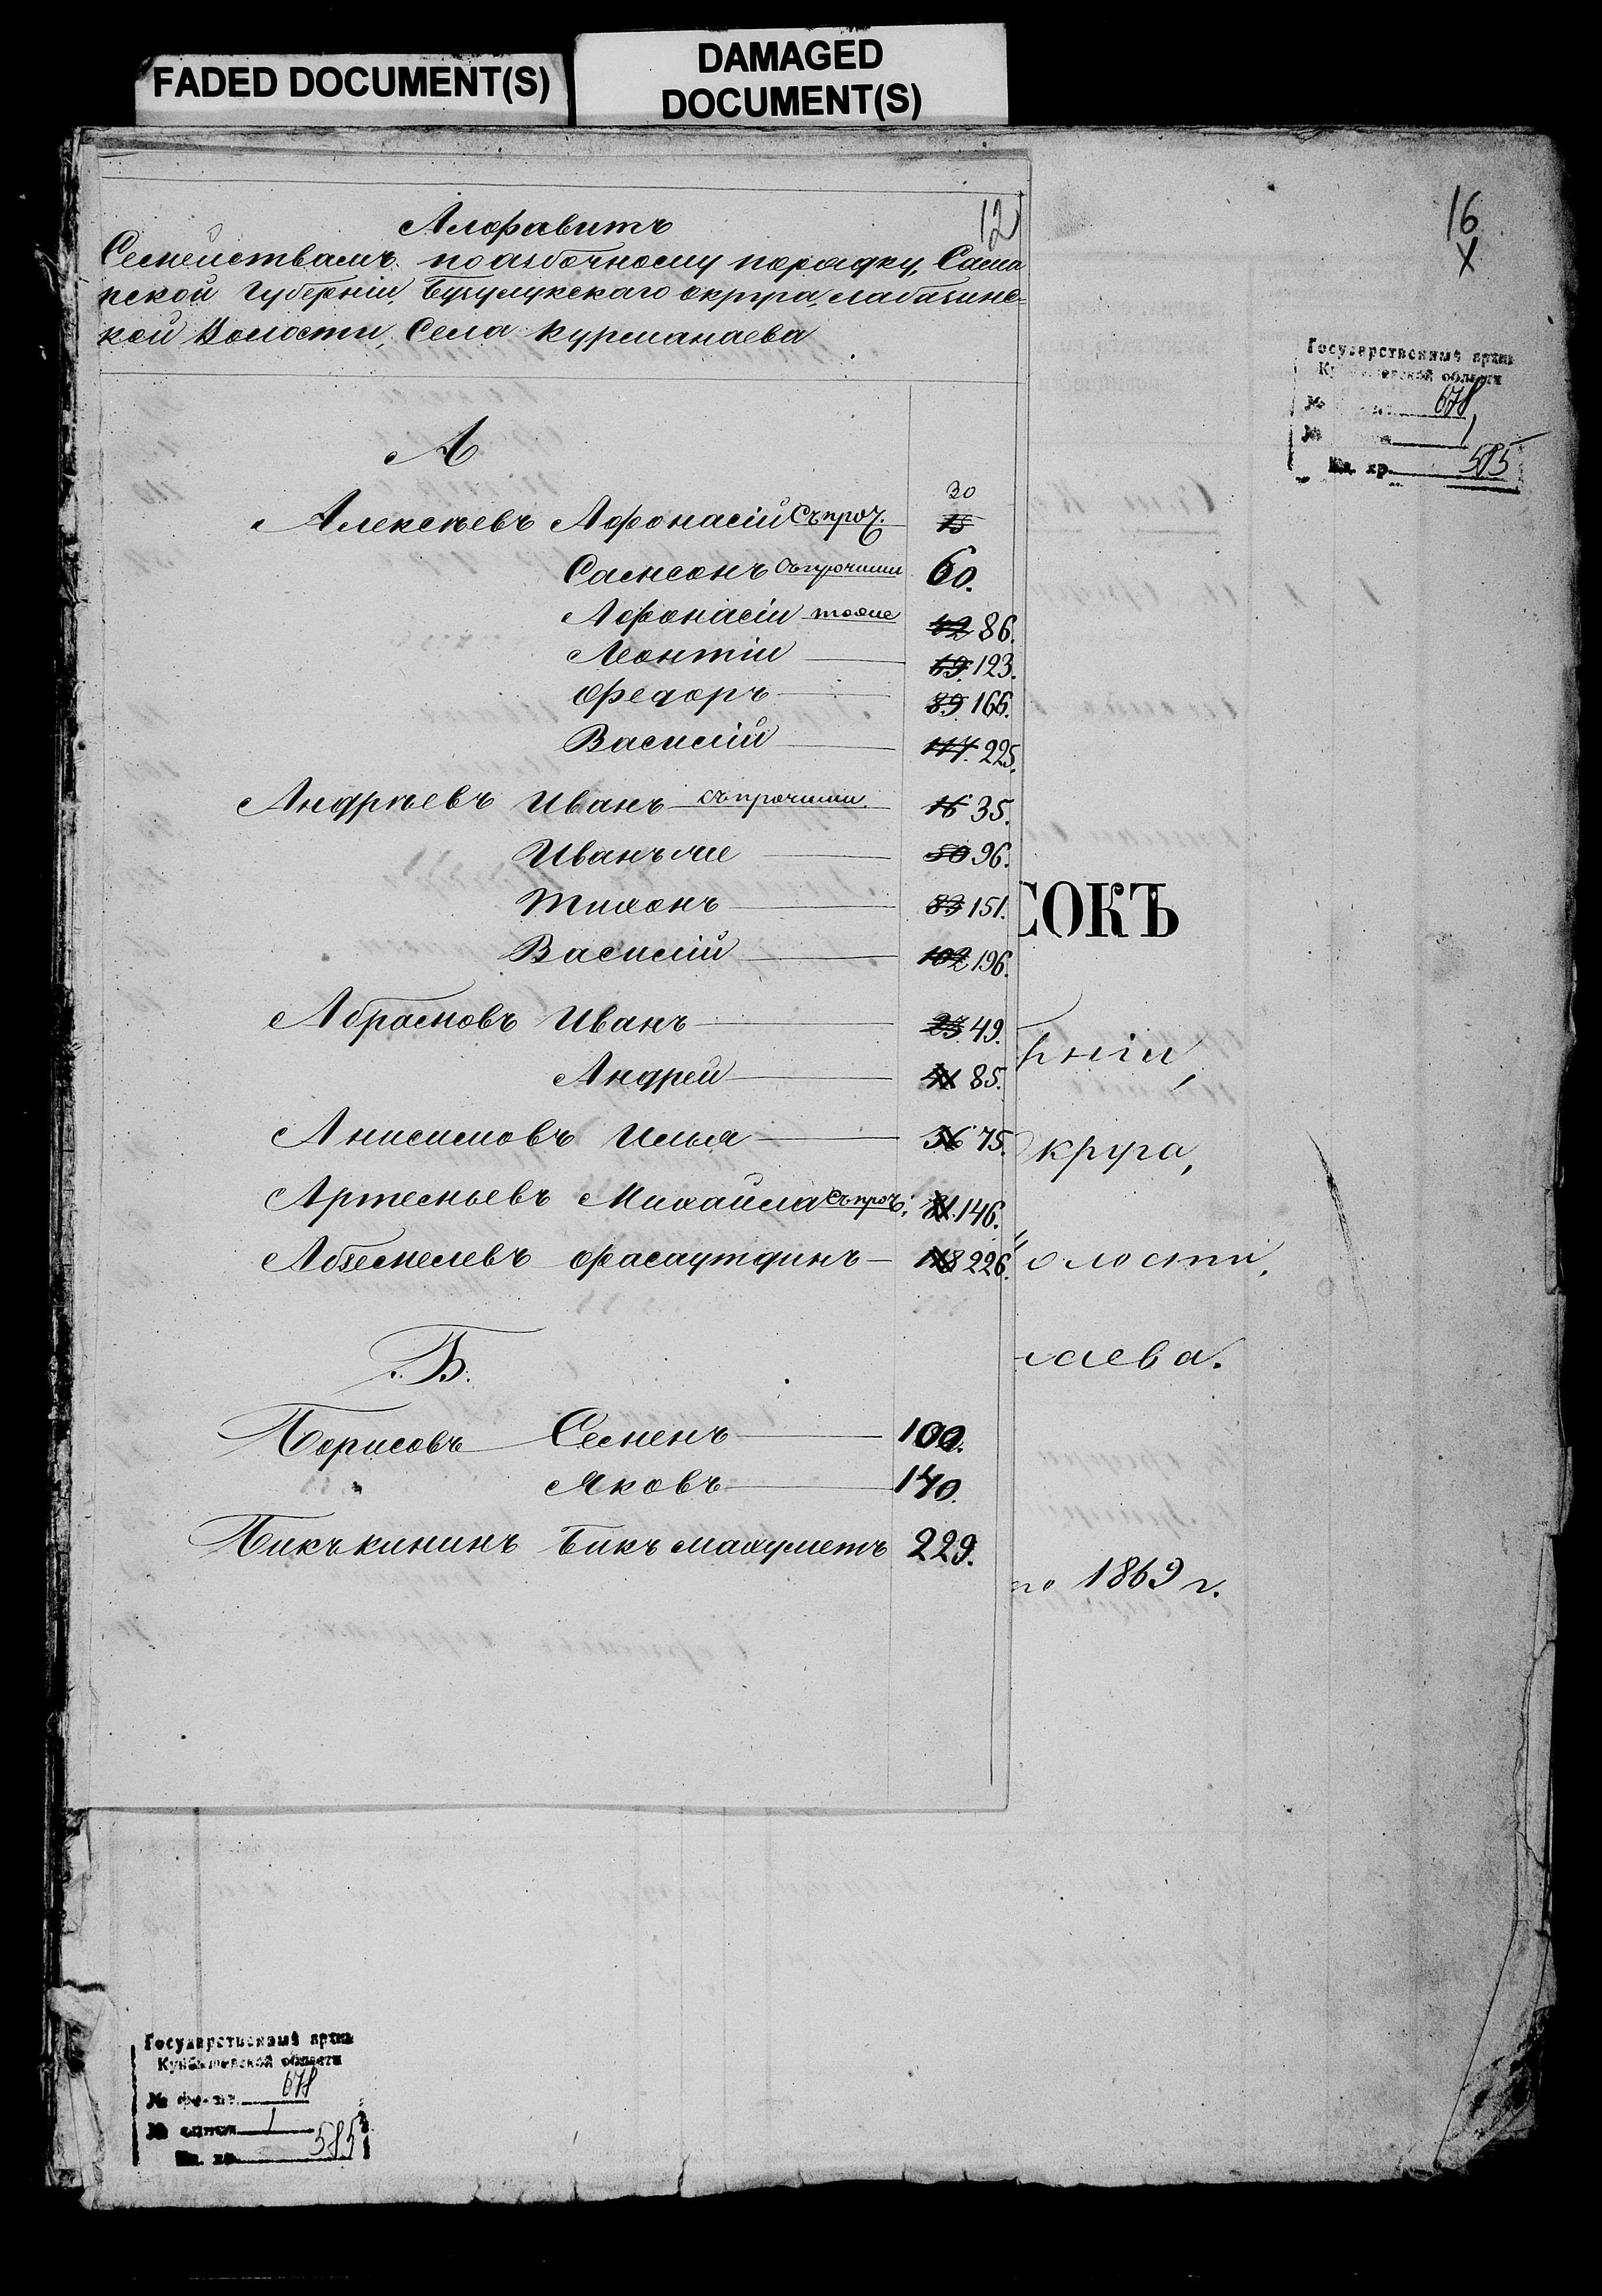 FADED DOCUMENT(S)
DAMAGED
DOCUMENT(S)
12
Алфавитъ
Семействамъ по азбочному порядку, Сама
рской Губерніи, Бузулукскаго округа, Лабазинс=
кой Волости, Села Курманаева
А
Алексѣевъ Афонасій съ проч. 15 30
Самсонъ съ прочими 60.
Афонасій тоже 42 86.
Леонтій 69. 123.
Федоръ 89 166.
Василій 117. 225.
Андрѣевъ Иванъ съ прочими. 16 35.
Иванъ же 50 96.
Тихонъ 83 151.
Василій 102 196.
Абрамовъ Иванъ 23. 49.
Андрей 41 85.
Анисимовъ Илья 36 75.
Артемьевъ Михайла съ проч. 81. 146.
Абземелевъ Фасаутдинъ 118 226.
Б.
Борисовъ Семенъ 100.
" Яковъ 140.
Бикъкининъ Бикъ махуметъ 229.
16
X
Государственный архив
Куйбышевской области
№ фонда 678
№ описи 1
Ед. хр. 585
СОКЪ
рніи,
Округа,
олости,
наева.
го 1869 г.
Государственный архив
Куйбышевской области
№ фонда 678
№ описи 1
Ед. хр. 585